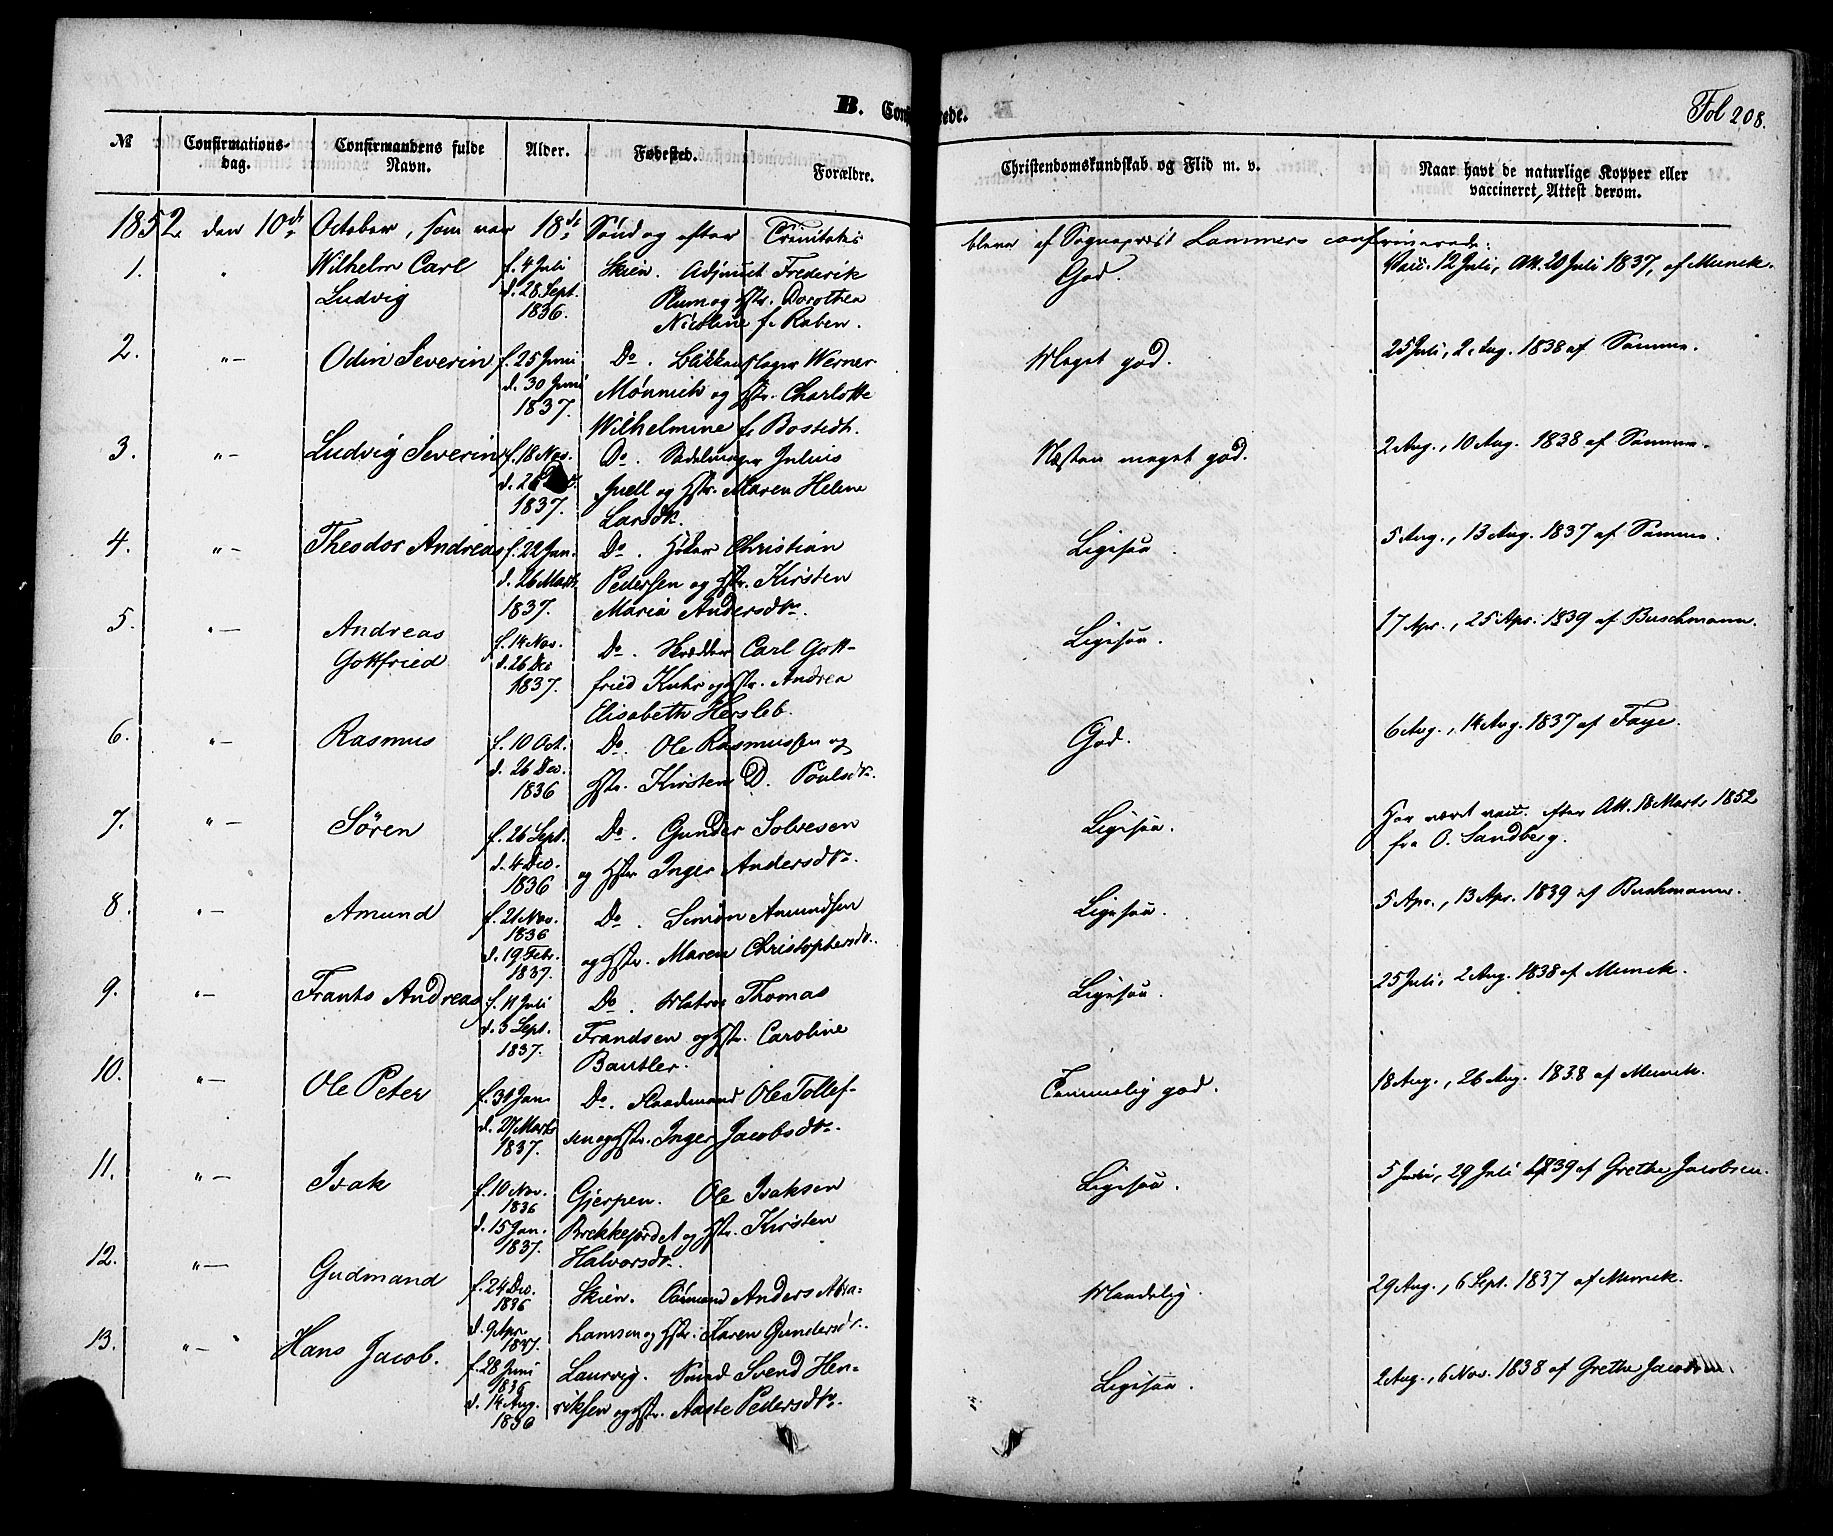 B. Conf rede.
Fol 208.
№ Confirmations-dag. Confirmandens fulde Navn. Alder. Fødested. Forældre. Christendomskundskab og Flid m. v. Naar havt de naturlige Kopper eller vaccineret, Attest derom.
1852 den 10de October, som var 18de Søndag efter Trinitatis bleve af Sognepræst Lammers confirmerede:
1. " Wilhelm Carl f. 4 Juli Skien. Adjunct Frederik God. Vacc. 12 Juli, Att. 20 Juli 1837, af Munck.
Ludvig d. 28 Sept. Plum og Hstr. Dorothea
1836. Nicoline f. Raben.
2. "– Odin Severin f. 25 Juni Do. Blikkenslager Werner Meget god. 25 Juli, 2 Aug. 1838 af Samme.
d. 30 Juni Mönnich og Hstr. Charlotte
1837. Wilhelmine f. Bostedt.
3. "– Ludvig Severin f. 18 Nov. Do. Sadelmager Julius Næsten meget god. 2 Aug., 10 Aug. 1838 af Samme.
d. 26 Juell og Hstr. Maren Helene
1837. Larsdtr.
4. "– Theodor Andreas f. 22 Jan. Do. Høker Christian Ligesaa. 5 Aug., 13 Aug. 1837 af Samme.
d. 26 Marts Pedersen og Hstr. Kirsten
1837. Maria Andersdtr.
5. "– Andreas f. 14 Nov. Do. Skrædder Carl Gott- Ligesaa. 17 Apr., 25 Apr. 1839 af Buschmann.
Gottfried d. 26 Dec fried Kuhr og Hstr. Andrea
1837. Elisabeth Hersleb.
6. "– Rasmus f. 10 Oct. Do. Ole Rasmussen og God. 6 Aug., 14 Aug. 1837 af Faye.
d. 26 Dec. Hstr. Kirsten D. Poulsdtr.
1836
7. "– Sören f. 26 Sept. Do. Gunder Solvesen Ligesaa. Har været vacc. efter Att. 18 Marts 1852
d. 4 Dec. og Hstr Inger Andersdtr. fra O. Sandberg.
1836
8. "– Amund f. 21 Nov. Do. Simon Amundsen Ligesaa. 5 Apr., 13 Apr. 1839 af Buschmann.
1836
d. 19 Febr. og Hstr. Maren Christophersdtr.
1837.
9. "– Frants Andreas f. 11 Juli Do. Matros Thomas Ligesaa. 25 Juli, 2 Aug. 1838 af Munck.
d. 3 Sept. Frandsen og Hstr. Caroline
1837. Bautler.
10. "– Ole Peter f. 31 Jan. Do. Ole Tollef- Temmelig god. 18 Aug., 26 Aug. 1838 af Munck.
d. 27 Marts sen og Hstr. Inger Jacobsdtr.
1837.
11. "– Isak f. 10 Nov. Gjerpen. Ole Isaksen Ligesaa. 5 Juli, 29 Juli 1839 af Grethe Jacobsen.
1836
d. 15 Jan. Brekkejordet og Hstr. Kirsten
1837. Halvorsdtr.
12. "– Gudmand f. 24 Dec. Skien. Anders Abra- Maadelig. 29 Aug., 6 Sept. 1837 af Munck.
1836
d. 9 Apr. hamsen og Hstr. Karen Gundersdtr.
1837.
13. "– Hans Jacob. f. 28 Juni Laurvig. Smed Svend Hen- Ligesaa. 2 Aug., 6 Nov. 1838 af Grethe
1836
d. 14 Aug. riksen og Hstr. Aaste Pedersdtr.
1836